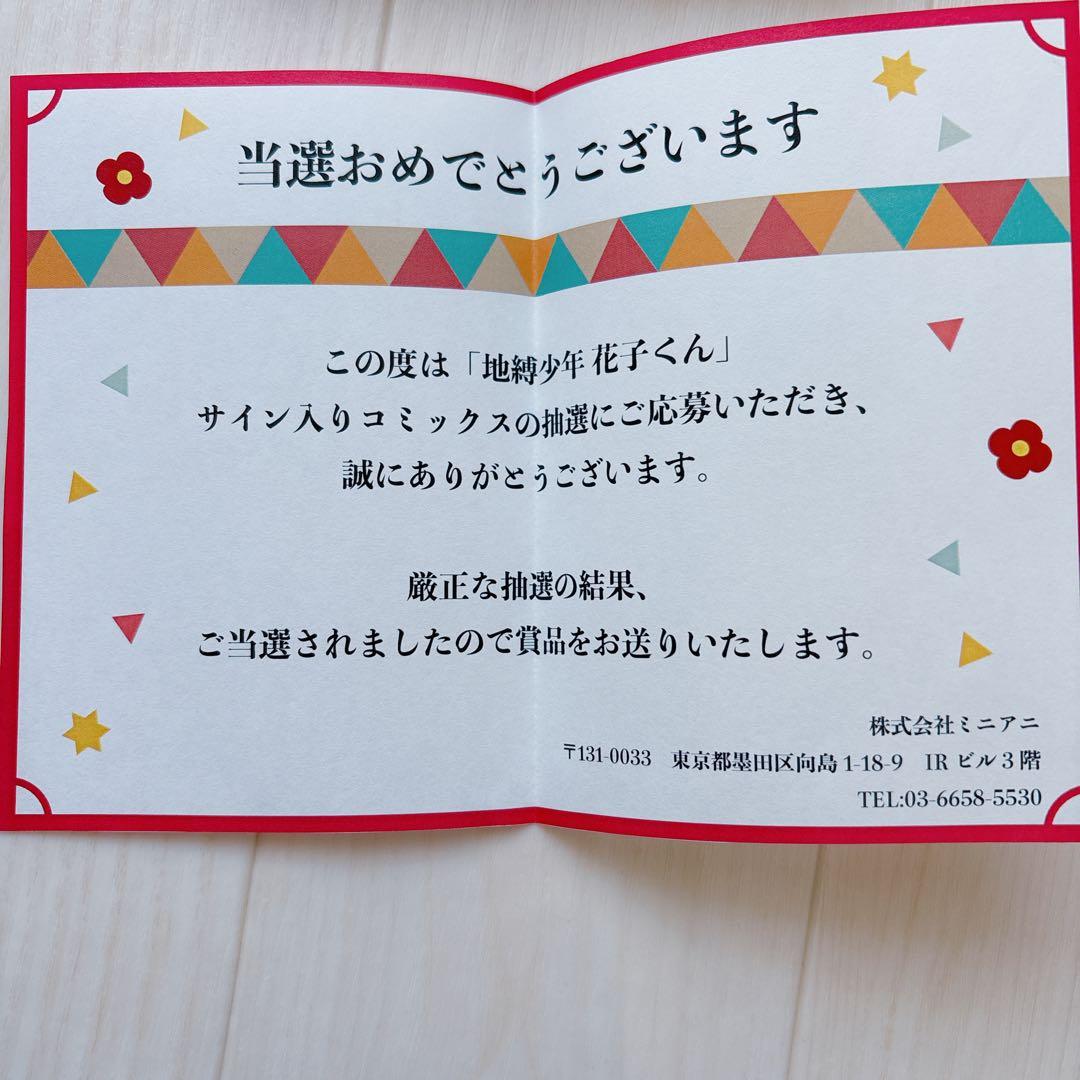 当選おめでとうございます
この度は「地縛少年 花子くん」
サイン入りコミックスの抽選にご応募いただき、
誠にありがとうございます。
厳正な抽選の結果、
ご当選されましたので賞品をお送りいたします。
株式会社ミニアニ
〒131-0033 東京都墨田区向島1-18-9 IRビル3階
TEL:03-6658-5530